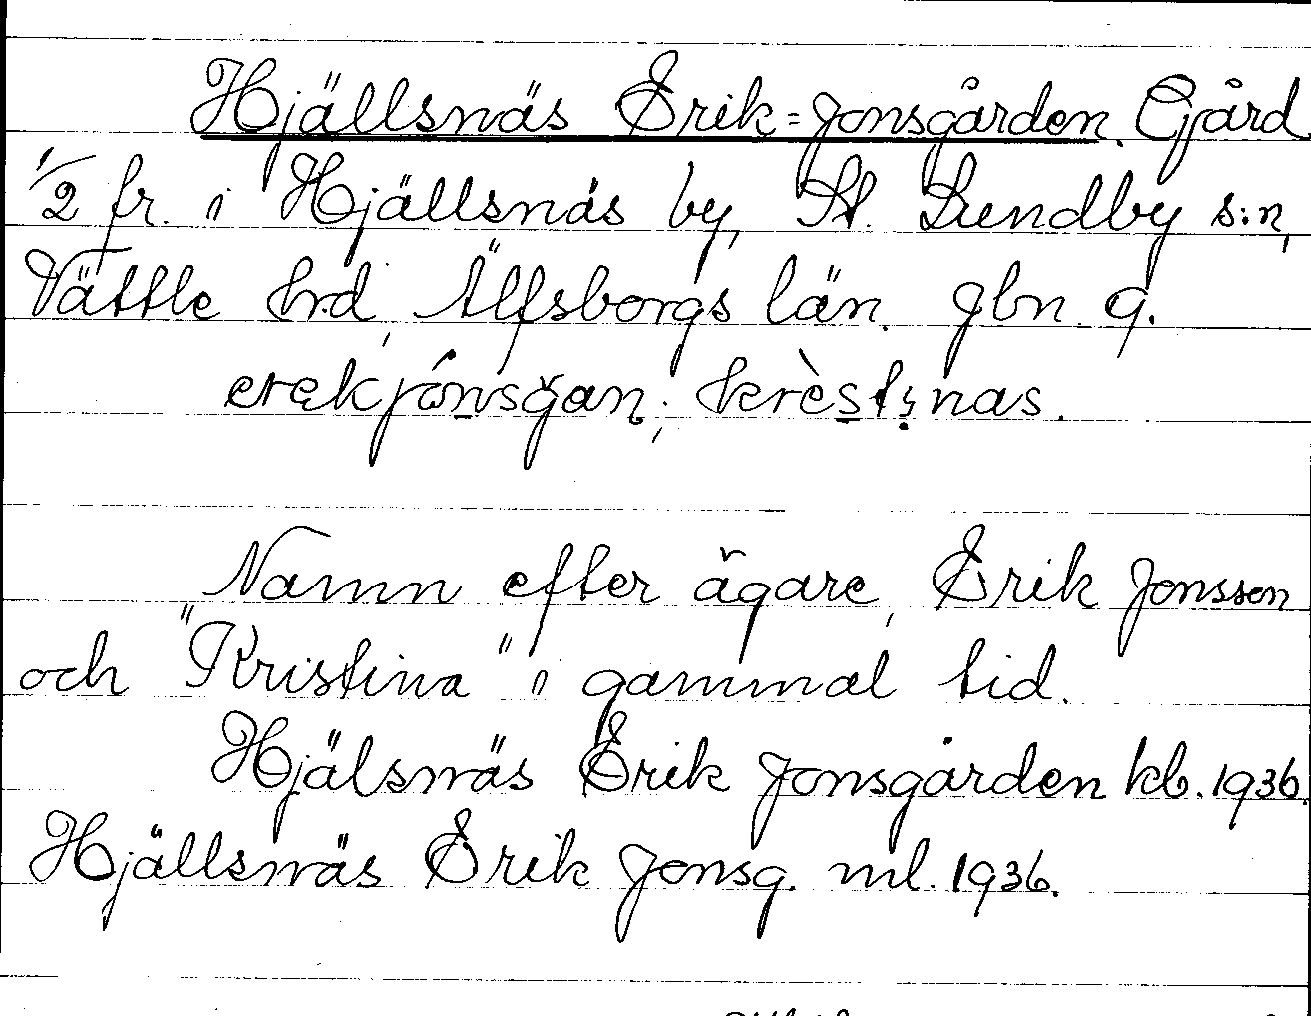 Hjällsnäs Erik=Jonsgården. Gård
1/2 fr. i Hjällsnäs by, St. Lundby s:n,
Vättle hrd, Älfsborgs län. gbn 9.
erekjónsgan; krèstṇnas.
Namn efter ägare, Erik Jonsson
och "Kristina" i gammal tid.
Hjälsnäs Erik Jonsgården kb. 1936.
Hjällsnäs Erik Jonsg. ml. 1936.